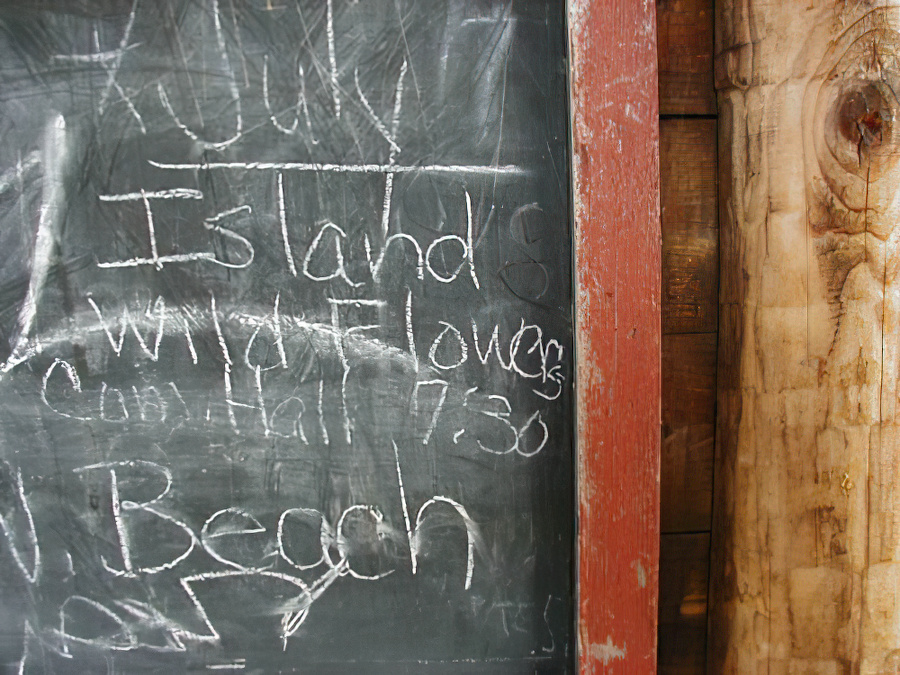 July
Island
Wild Flowers
Com. Hall 7:30
N. Beach